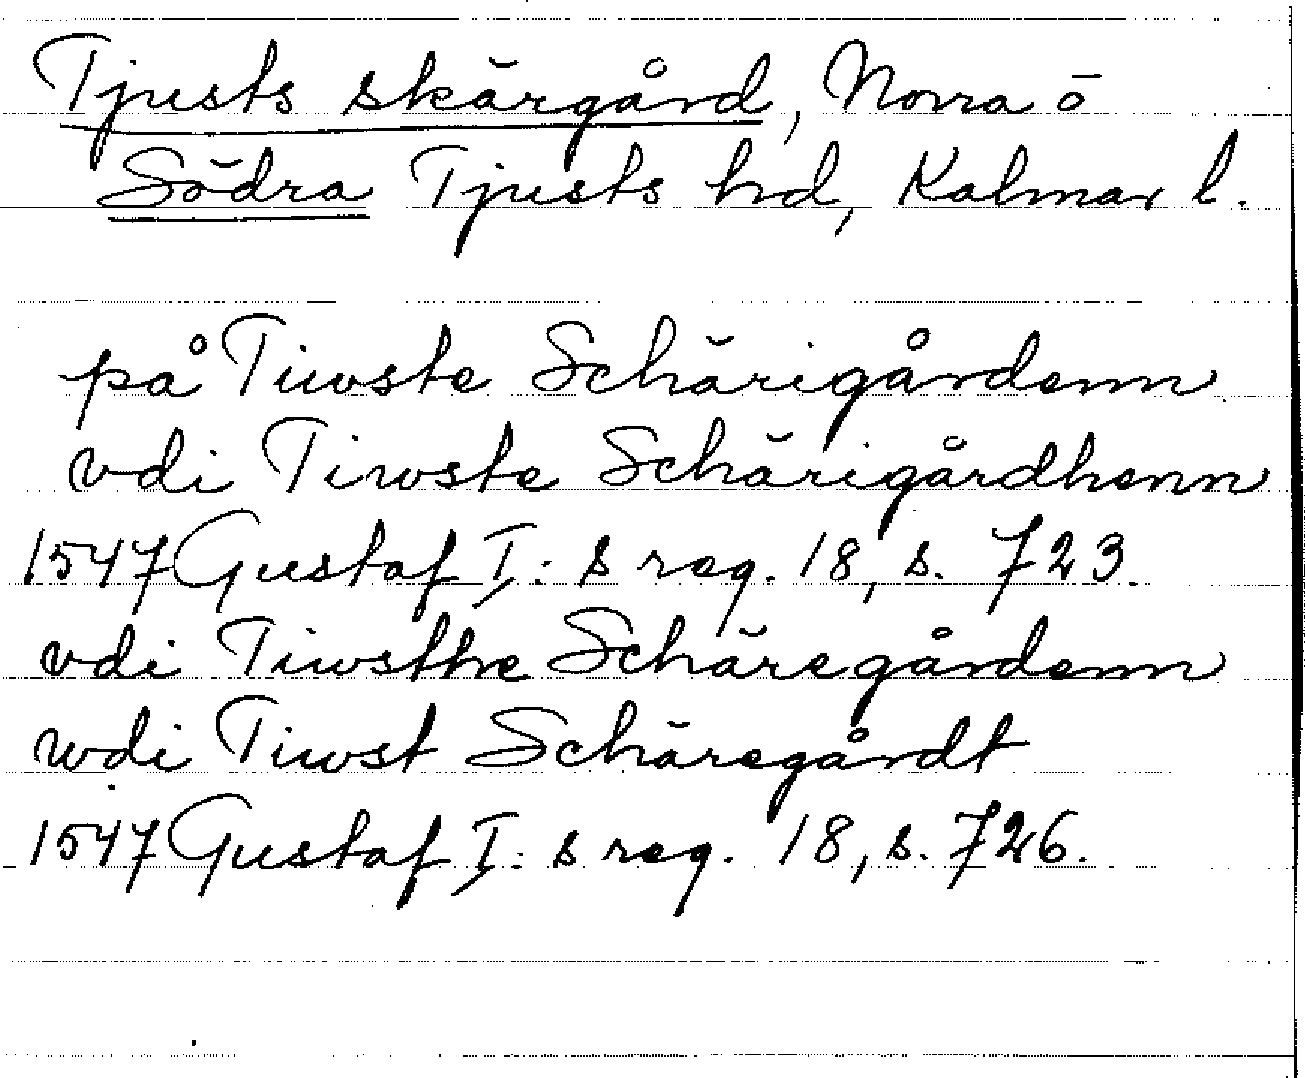 Tjusts skärgård, Norra o
Södra Tjusts hd, Kalmar l.
på Tiwste Schärigårdenn
vdi Tiwste Schärigårdhenn
1547 Gustaf I:s reg. 18, s. 723.
vdi Tiwsthe Schäregårdenn
wdi Tiwst Schäregårdt
1547 Gustaf I:s reg. 18, s. 726.